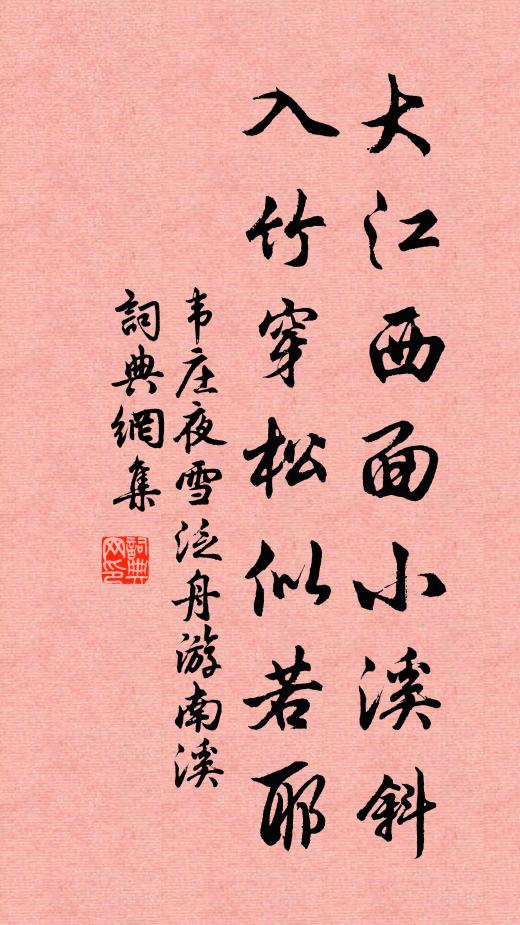 大江西面小溪斜
入竹穿松似若耶
韦庄夜雪泛舟游南溪
詞典網集
詞典网印